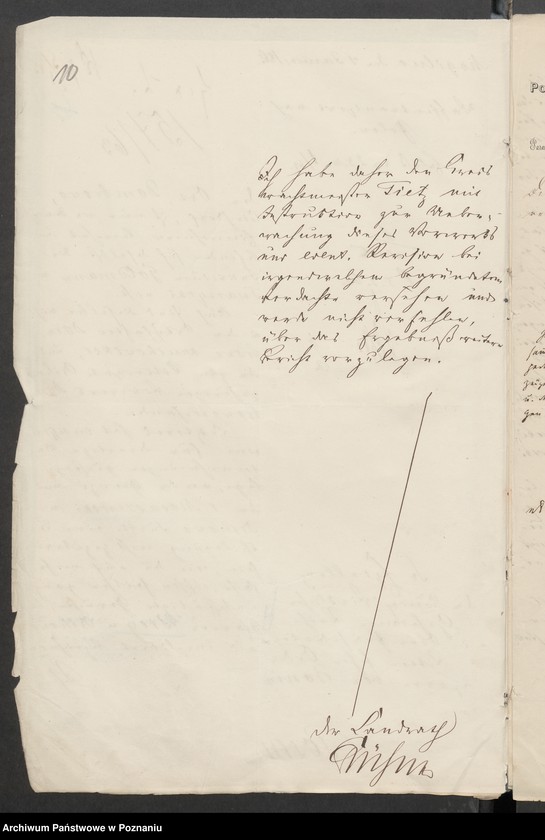 10
Ich habe daher den Kreis
wachtmeister Tietz mit
Instruktion zur Ueber-
wachung dieses Vorwerks
und event. Revision bei
irgendwelchem begründeten
Verdachte versehen und
werde nicht verfehlen,
über das Ergebniß weitern
Bericht vorzulegen.
Der Landrath
Archiwum Państwowe w Poznaniu